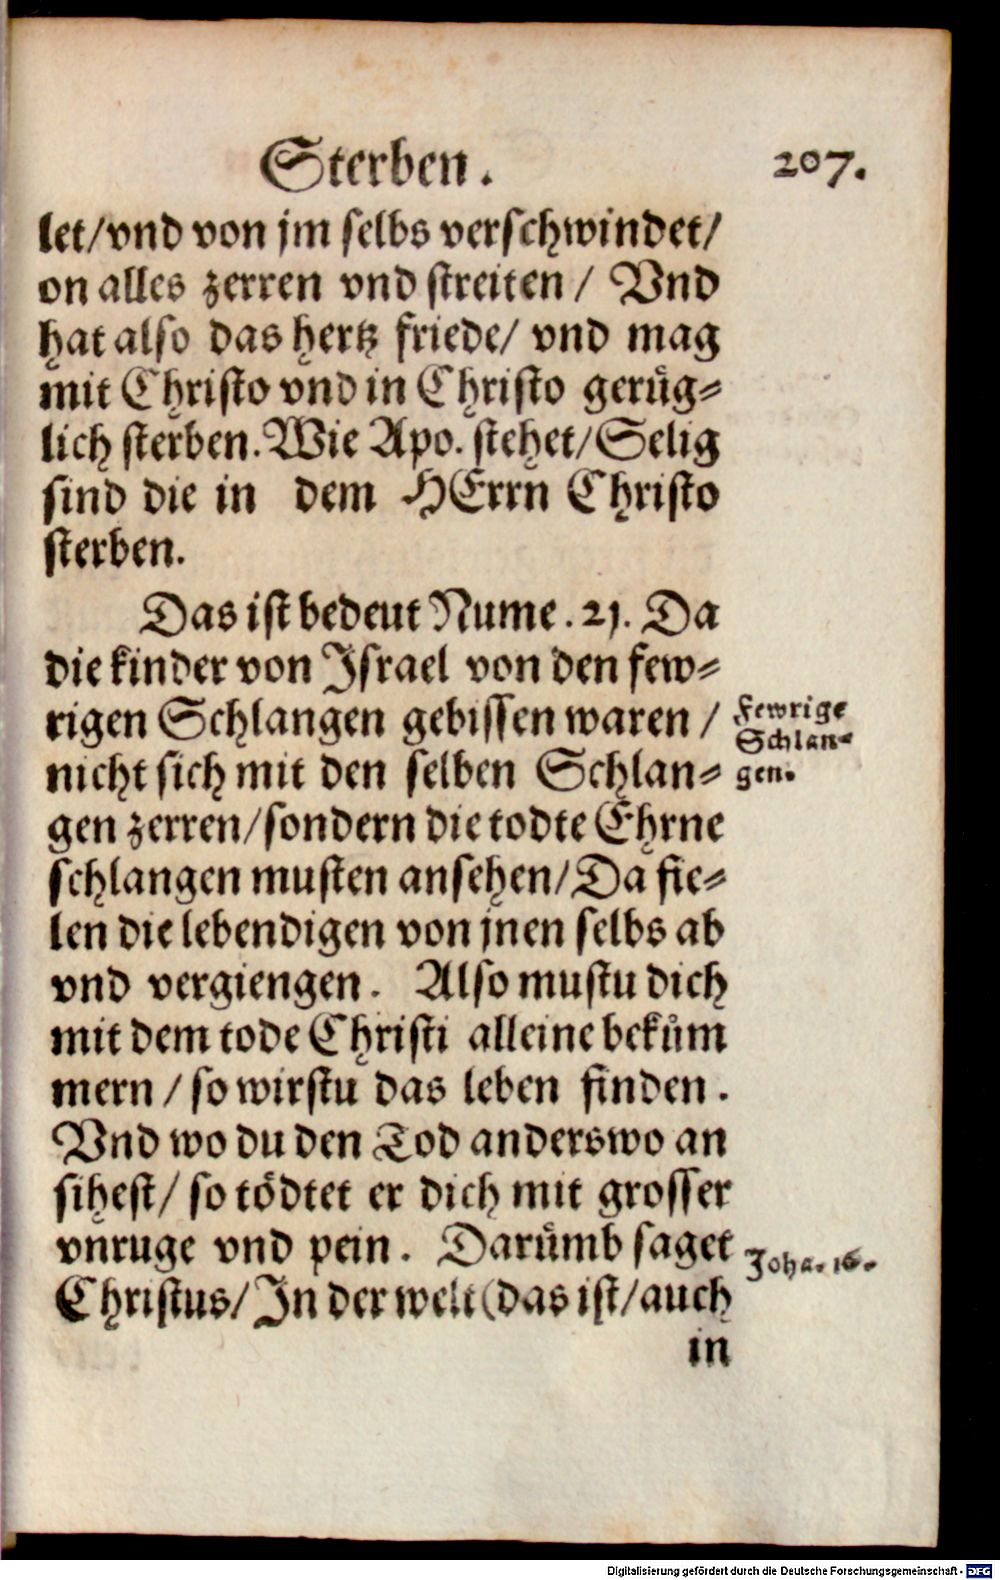 Sterben. 207.
let/vnd von jm selbs verschwindet/
on alles zerren vnd streiten / Vnd
hat also das hertz friede/ vnd mag
mit Christo vnd in Christo gerüg⸗
lich sterben. Wie Apo. stehet/Selig
sind die in dem HErrn Christo
sterben.
Das ist bedeut Nume. 21. Da
die kinder von Israel von den few⸗
rigen Schlangen gebissen waren /
nicht sich mit den selben Schlan⸗
gen zerren/sondern die todte Ehrne
schlangen musten ansehen/Da fie⸗
len die lebendigen von jnen selbs ab
vnd vergiengen. Also mustu dich
mit dem tode Christi alleine beküm
mern / so wirstu das leben finden.
Vnd wo du den Tod anderswo an
sihest/ so tödtet er dich mit grosser
vnruge vnd pein. Darümb saget
Christus/ In der welt (das ist/auch
in
Fewrige
Schlan⸗
gen.
Joha. 16.
Digitalisierung gefördert durch die Deutsche Forschungsgemeinschaft - DFG